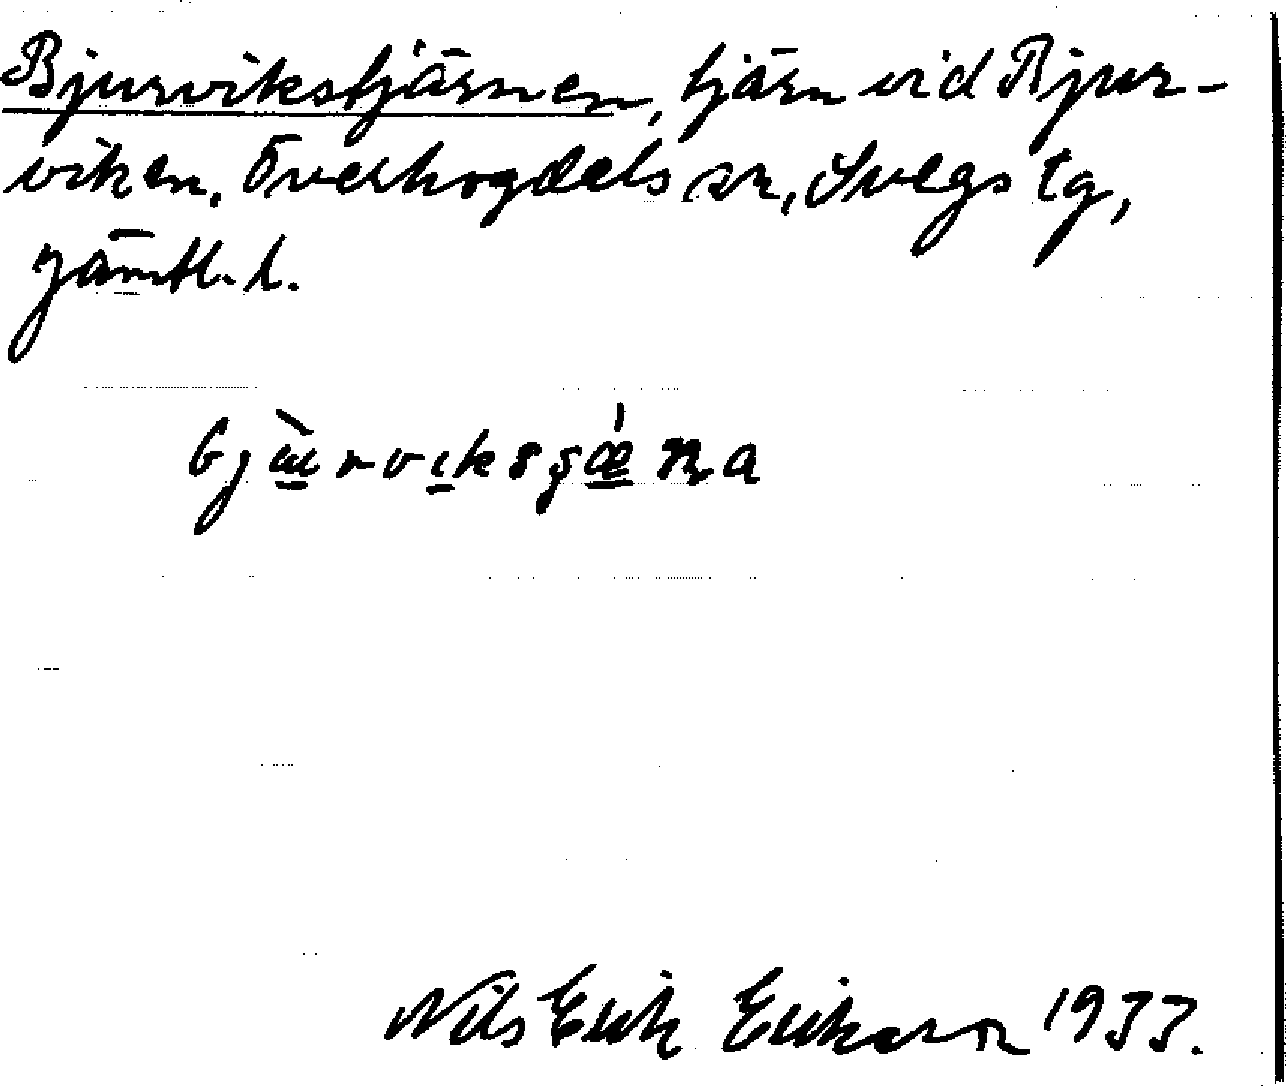 Bjurvikstjärnen, tjärn vid Bjur-
viken, Överhogdals sn, Svegs tg,
Jämtl. l.
Nils Erik Erikson 1933.